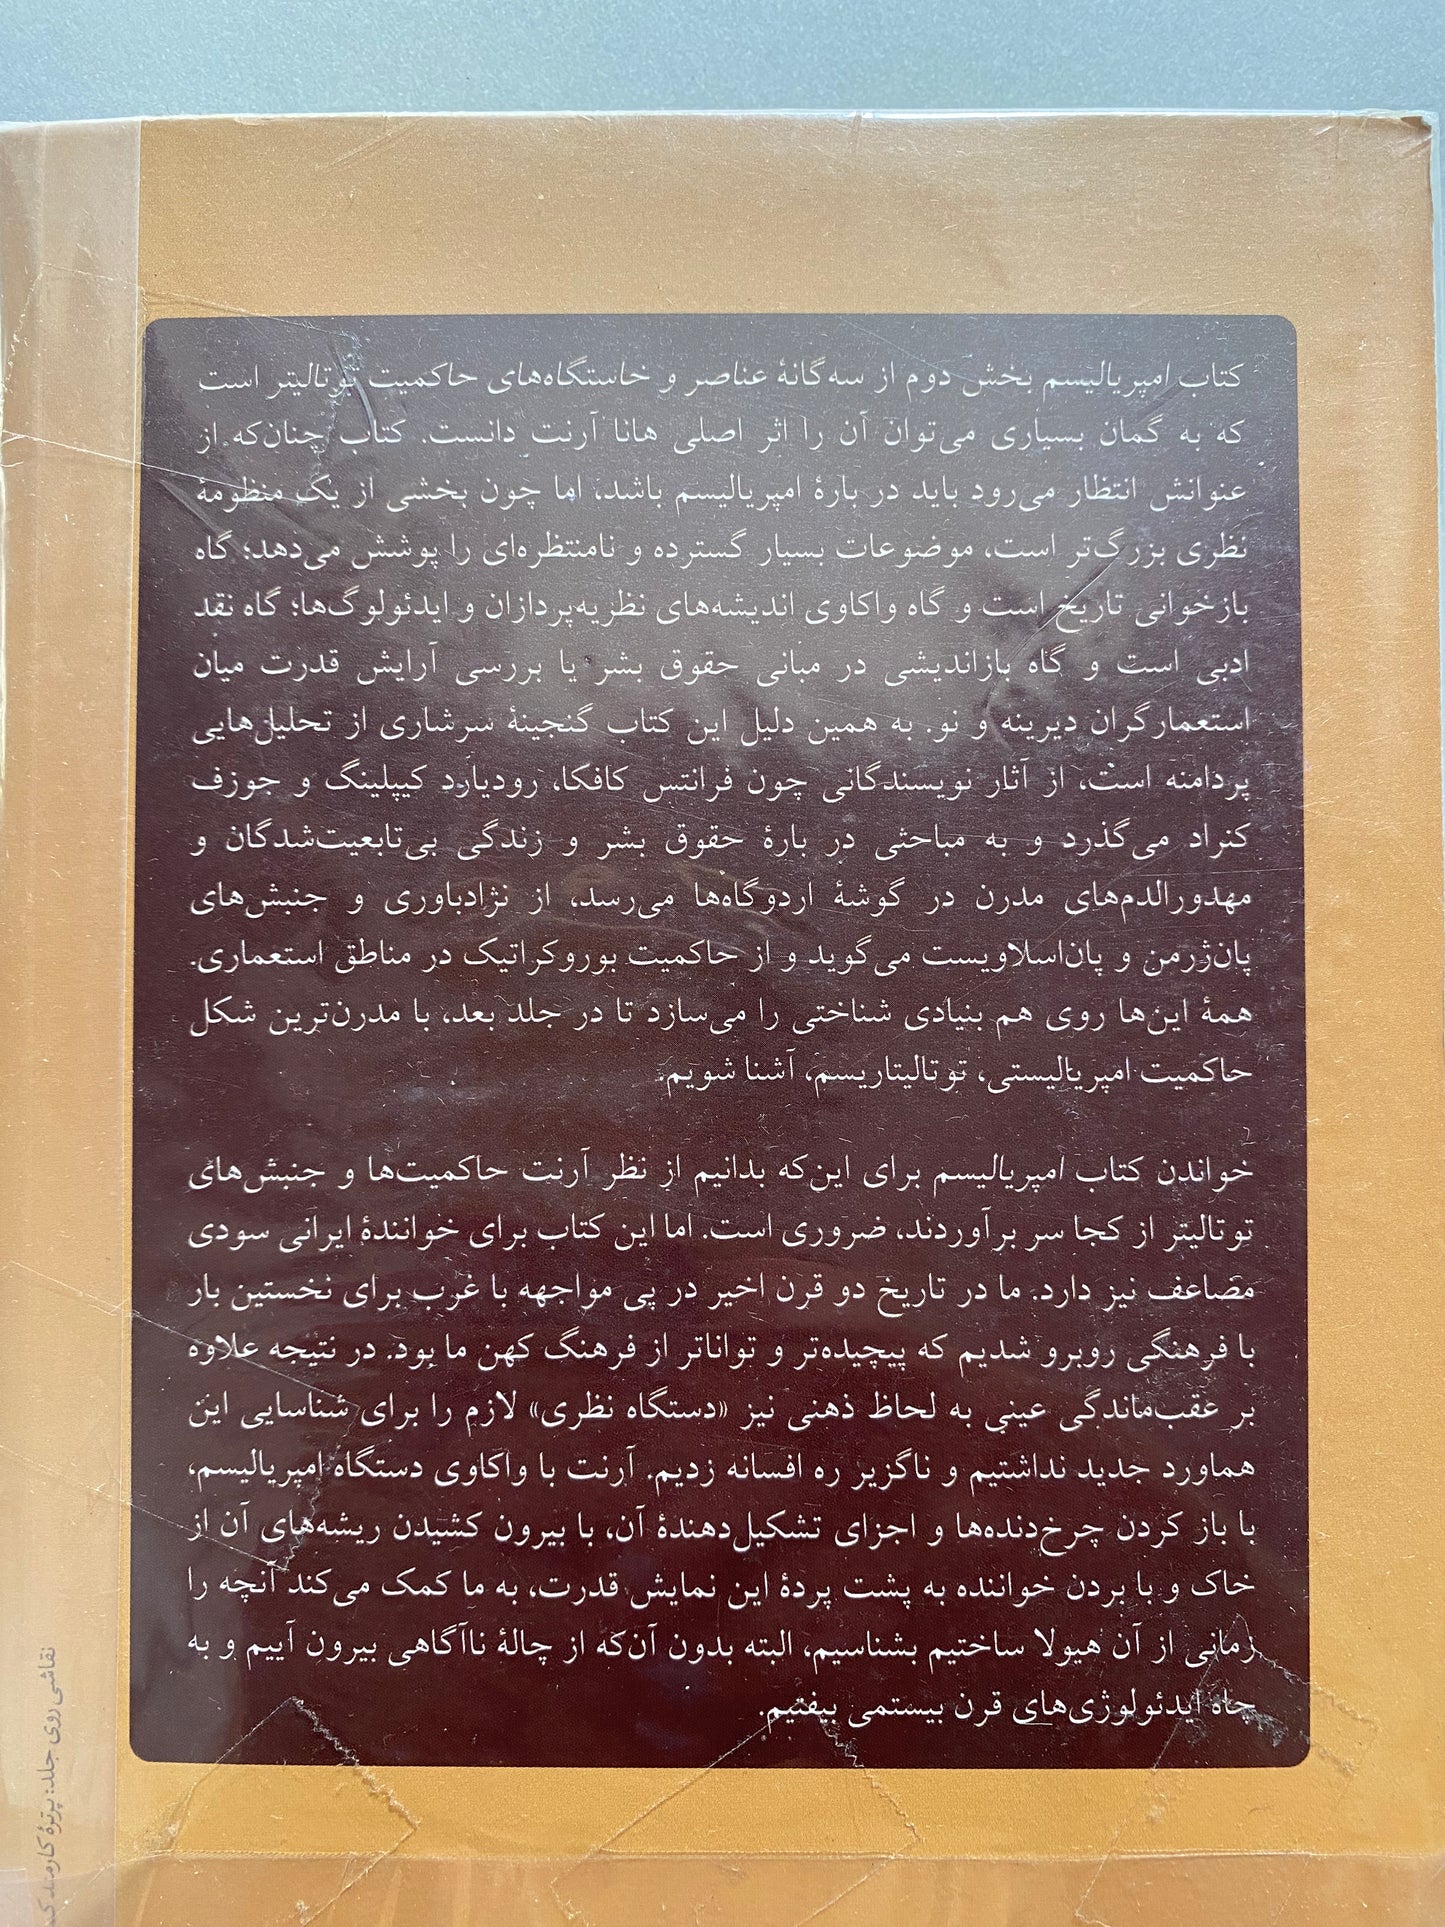 کتاب امپریالیسم بخش دوم از سه‌گانهٔ عناصر و خاستگاه‌های حاکمیت توتالیتر است
که به گمان بسیاری می‌توان آن را اثر اصلی هانا آرنت دانست. کتاب چنان‌که از
عنوانش انتظار می‌رود باید در بارهٔ امپریالیسم باشد، اما چون بخشی از یک منظومهٔ
نظری بزرگ‌تر است، موضوعات بسیار گسترده و نامنتظره‌ای را پوشش می‌دهد؛ گاه
بازخوانی تاریخ است و گاه واکاوی اندیشه‌های نظریه‌پردازان و ایدئولوگ‌ها؛ گاه نقد
ادبی است و گاه بازاندیشی در مبانی حقوق بشر یا بررسی آرایش قدرت میان
استعمارگران دیرینه و نو. به همین دلیل این کتاب گنجینهٔ سرشاری از تحلیل‌هایی
پردامنه است، از آثار نویسندگانی چون فرانتس کافکا، رودیارد کیپلینگ و جوزف
کنراد می‌گذرد و به مباحثی در بارهٔ حقوق بشر و زندگی بی‌تابعیت‌شدگان و
مهدورالدم‌های مدرن در گوشهٔ اردوگاه‌ها می‌رسد، از نژادباوری و جنبش‌های
پان‌ژرمن و پان‌اسلاویست می‌گوید و از حاکمیت بوروکراتیک در مناطق استعماری.
همهٔ این‌ها روی هم بنیادی شناختی را می‌سازد تا در جلد بعد، با مدرن‌ترین شکل
حاکمیت امپریالیستی، توتالیتاریسم، آشنا شویم.
خواندن کتاب امپریالیسم برای این‌که بدانیم از نظر آرنت حاکمیت‌ها و جنبش‌های
توتالیتر از کجا سر برآوردند، ضروری است. اما این کتاب برای خوانندهٔ ایرانی سودی
مضاعف نیز دارد. ما در تاریخ دو قرن اخیر در پی مواجهه با غرب برای نخستین بار
با فرهنگی روبرو شدیم که پیچیده‌تر و تواناتر از فرهنگ کهن ما بود. در نتیجه علاوه
بر عقب‌ماندگی عینی به لحاظ ذهنی نیز «دستگاه نظری» لازم را برای شناسایی این
هماورد جدید نداشتیم و ناگزیر ره افسانه زدیم. آرنت با واکاوی دستگاه امپریالیسم،
با باز کردن چرخ‌دنده‌ها و اجزای تشکیل‌دهندهٔ آن، با بیرون کشیدن ریشه‌های آن از
خاک و با بردن خواننده به پشت پردهٔ این نمایش قدرت، به ما کمک می‌کند آنچه را
زمانی از آن هیولا ساختیم بشناسیم، البته بدون آن‌که از چالهٔ ناآگاهی بیرون آییم و به
چاه ایدئولوژی‌های قرن بیستمی بیفتیم.
نقاشی روی جلد: پرترهٔ کارمند